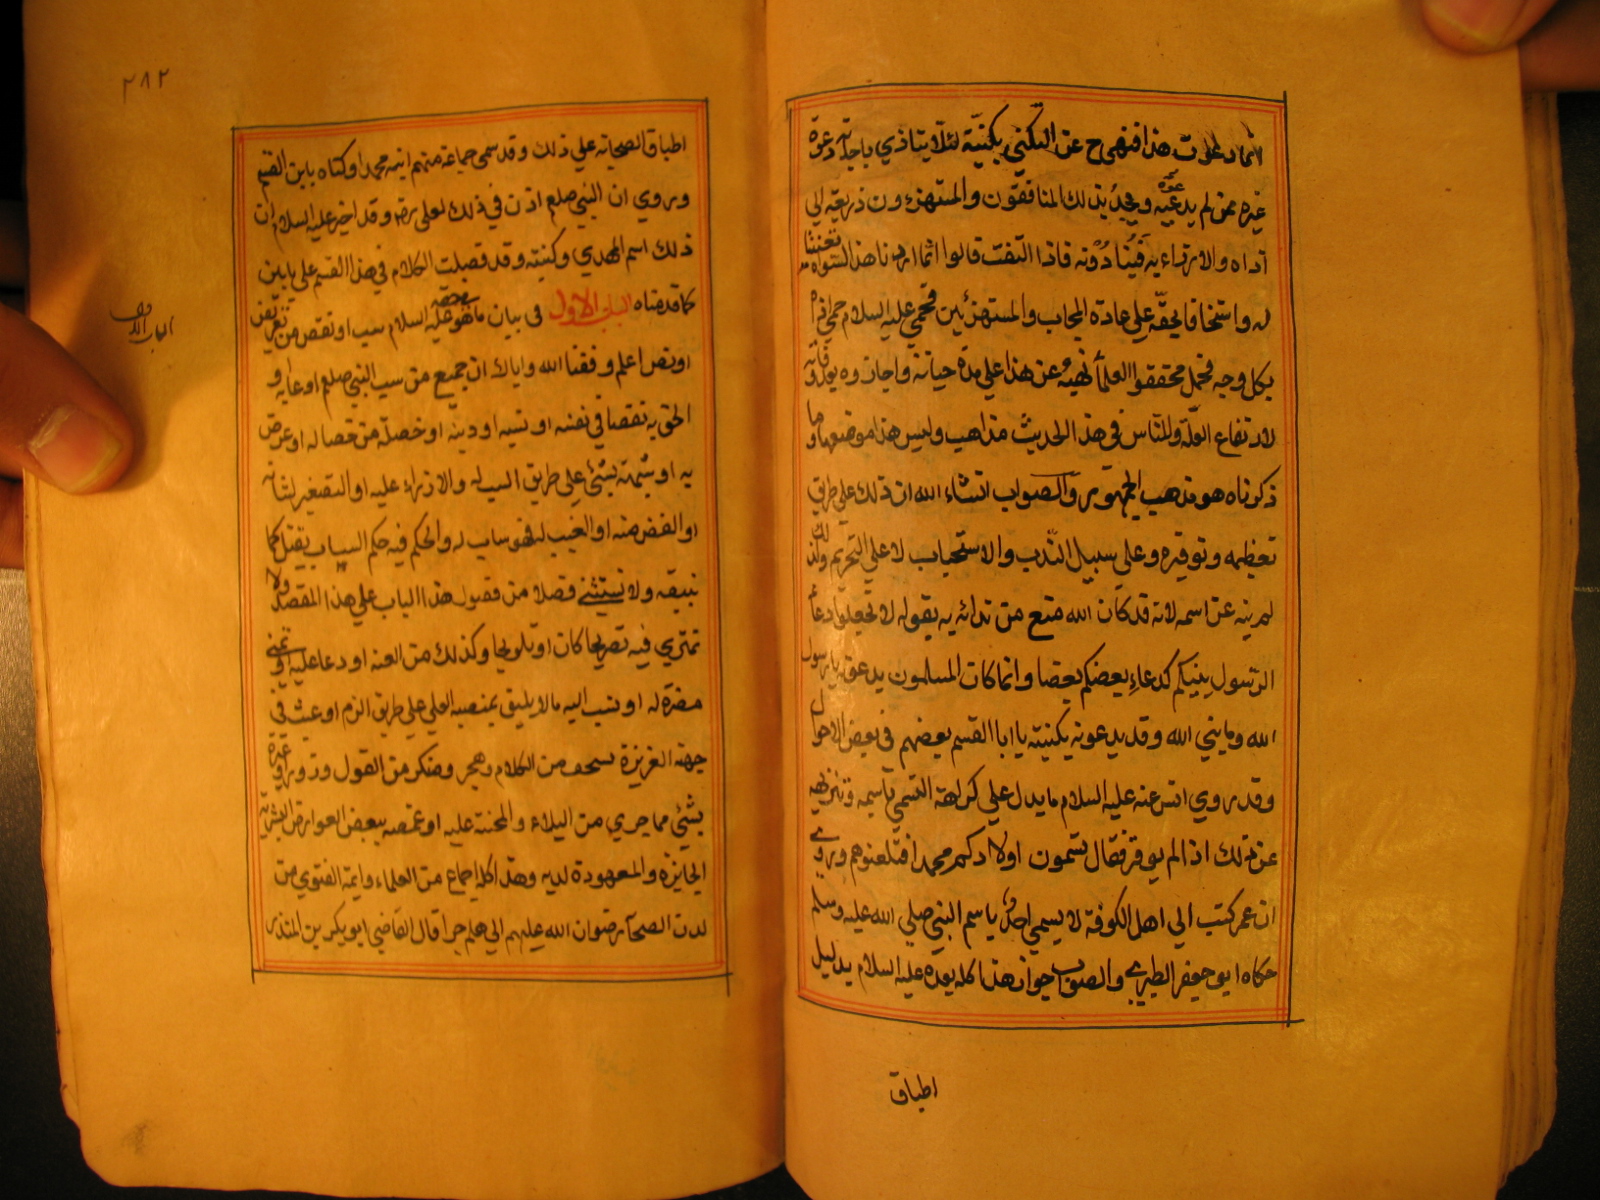 انما دعوت هذا فنهى ح عن التكنى بكنيته لئلا يتاذي باجابة دعوة
غيره ممن لم يدعه ويجد بذلك المنافقون والمستهزؤن ذريعة الي
اذاه والازراء به فينادونه فاذا التفت قالوا انما اردنا هذا لسواه تعنيتا
له واستخفافا بحقه علي عادة المجان والمستهزئين فحمي عليه السلام حمي اذاه
بكل وجه فحمل محققوا العلماء نهيه عن هذا علي مدة حياته واجازوه بعد وفاته
لارتفاع العلة وللناس في هذ الحديث مذاهب وليس هذا موضعها وما
ذكرناه هو مذهب الجمهور والصواب انشاء الله ان ذلك علي طريق
تعظيمه وتوقيره وعلي سبيل الندب والاستحباب لا علي التحريم ولذلك
لم ينه عن اسمه لانه قد كان الله منع من ندائه به بقوله لا تجعلوا دعاء
الرسول بينكم كدعاء بعضكم بعضا وانما كان المسلمون يدعونه يا رسول
الله ويا نبي الله وقد يدعونه بكنيته يا ابا القسم بعضهم في بعض الاحوال
وقد روي انس عنه عليه السلام ما يدل علي كراهة التسمي باسمه وتنزيهه
عن ذلك اذا لم يوقر فقال تسمون اولادكم محمدا ثم تلعنوهم وروي
ان عمر كتب الي اهل الكوفة لا يسمي احد باسم النبي صلي الله عليه وسلم
حكاه ابو جعفر الطبري والصواب جواز هذا كله بعده عليه السلام بدليل
اطباق
٢٨٢
اطباق الصحابة علي ذلك وقد سمى جماعة منهم ابنه محمدا وكناه بابن القسم
وروي ان النبي صلعم اذن في ذلك لعلي رضه وقد اخبر عليه السلام ان
ذلك اسم المهدي وكنيته وقد فصلت الكلام في هذا القسم علي بابين
كما قدمناه الباب الاول في بيان ما هو في حقه عليه السلام سب او نقص من تعريض
او نص اعلم وفقنا الله واياك ان جميع من سب النبي صلعم او عابه و
الحق به نقصا في نفسه او نسبه او دينه او خصلة من خصاله او عرض
به او شبهه بشئ علي طريق السب له والازراء عليه او التصغير لشانه
او الغض منه او العيب له فهو ساب له والحكم فيه حكم الساب يقتل كما
نبينه ولا نستثني فصلا من فصول هذا الباب علي هذا المقصد ولا
نمتري فيه تصريحا كان او تلويحا وكذلك من لعنه او دعا عليه او تمنى
مضرة له او نسب اليه مالا يليق بمنصبه العلي علي طريق الذم او عبث في
جهته العزيزة بسخف من الكلام وهجر ومنكر من القول وزور او عيره
بشئ مما جري من البلاء والمحنة عليه او غمصه ببعض العوارض البشرية
الجايزة والمعهودة لديه وهذا كله اجماع من العلماء وايمة الفتوي من
لدن الصحابة رضوان الله عليهم الي هلم جرا قال القاضي ابو بكر بن المنذر